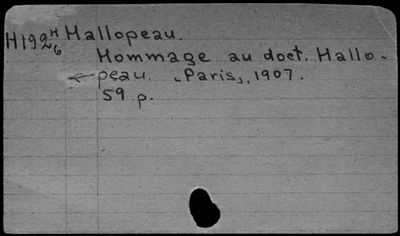 H192 H6 Hallopeau.
Hommage au doct. Hallo-
peau. [Paris], 1907.
59 p.